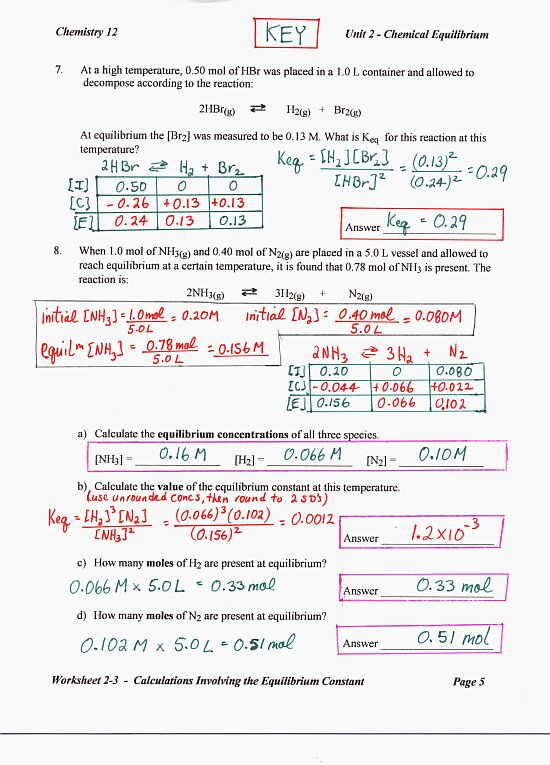 Chemistry 12 KEY Unit 2 - Chemical Equilibrium
7. At a high temperature, 0.50 mol of HBr was placed in a 1.0 L container and allowed to
decompose according to the reaction:
2HBr(g) ⇌ H2(g) + Br2(g)
At equilibrium the [Br2] was measured to be 0.13 M. What is Keq for this reaction at this
temperature?
2HBr ⇌ H2 + Br2
[I] 0.50 0 0
[C] -0.26 +0.13 +0.13
[E] 0.24 0.13 0.13
Keq = [H2][Br2] / [HBr]² = (0.13)² / (0.24)² = 0.29
Answer Keq = 0.29
8. When 1.0 mol of NH3(g) and 0.40 mol of N2(g) are placed in a 5.0 L vessel and allowed to
reach equilibrium at a certain temperature, it is found that 0.78 mol of NH3 is present. The
reaction is:
2NH3(g) ⇌ 3H2(g) + N2(g)
initial [NH3] = 1.0mol / 5.0L = 0.20M initial [N2] = 0.40 mol / 5.0L = 0.080M
equilm [NH3] = 0.78mol / 5.0L = 0.156M
2NH3 ⇌ 3H2 + N2
[I] 0.20 0 0.080
[C] -0.044 +0.066 +0.022
[E] 0.156 0.066 0.102
a) Calculate the equilibrium concentrations of all three species.
[NH3] = 0.16 M [H2] = 0.066 M [N2] = 0.10M
b) Calculate the value of the equilibrium constant at this temperature.
(use unrounded concs, then round to 2 SD's)
Keq = [H2]³[N2] / [NH3]² = (0.066)³(0.102) / (0.156)² = 0.0012
Answer 1.2x10⁻³
c) How many moles of H2 are present at equilibrium?
0.066 M x 5.0 L = 0.33 mol
Answer 0.33 mol
d) How many moles of N2 are present at equilibrium?
0.102 M x 5.0 L = 0.51 mol
Answer 0.51 mol
Worksheet 2-3 - Calculations Involving the Equilibrium Constant Page 5